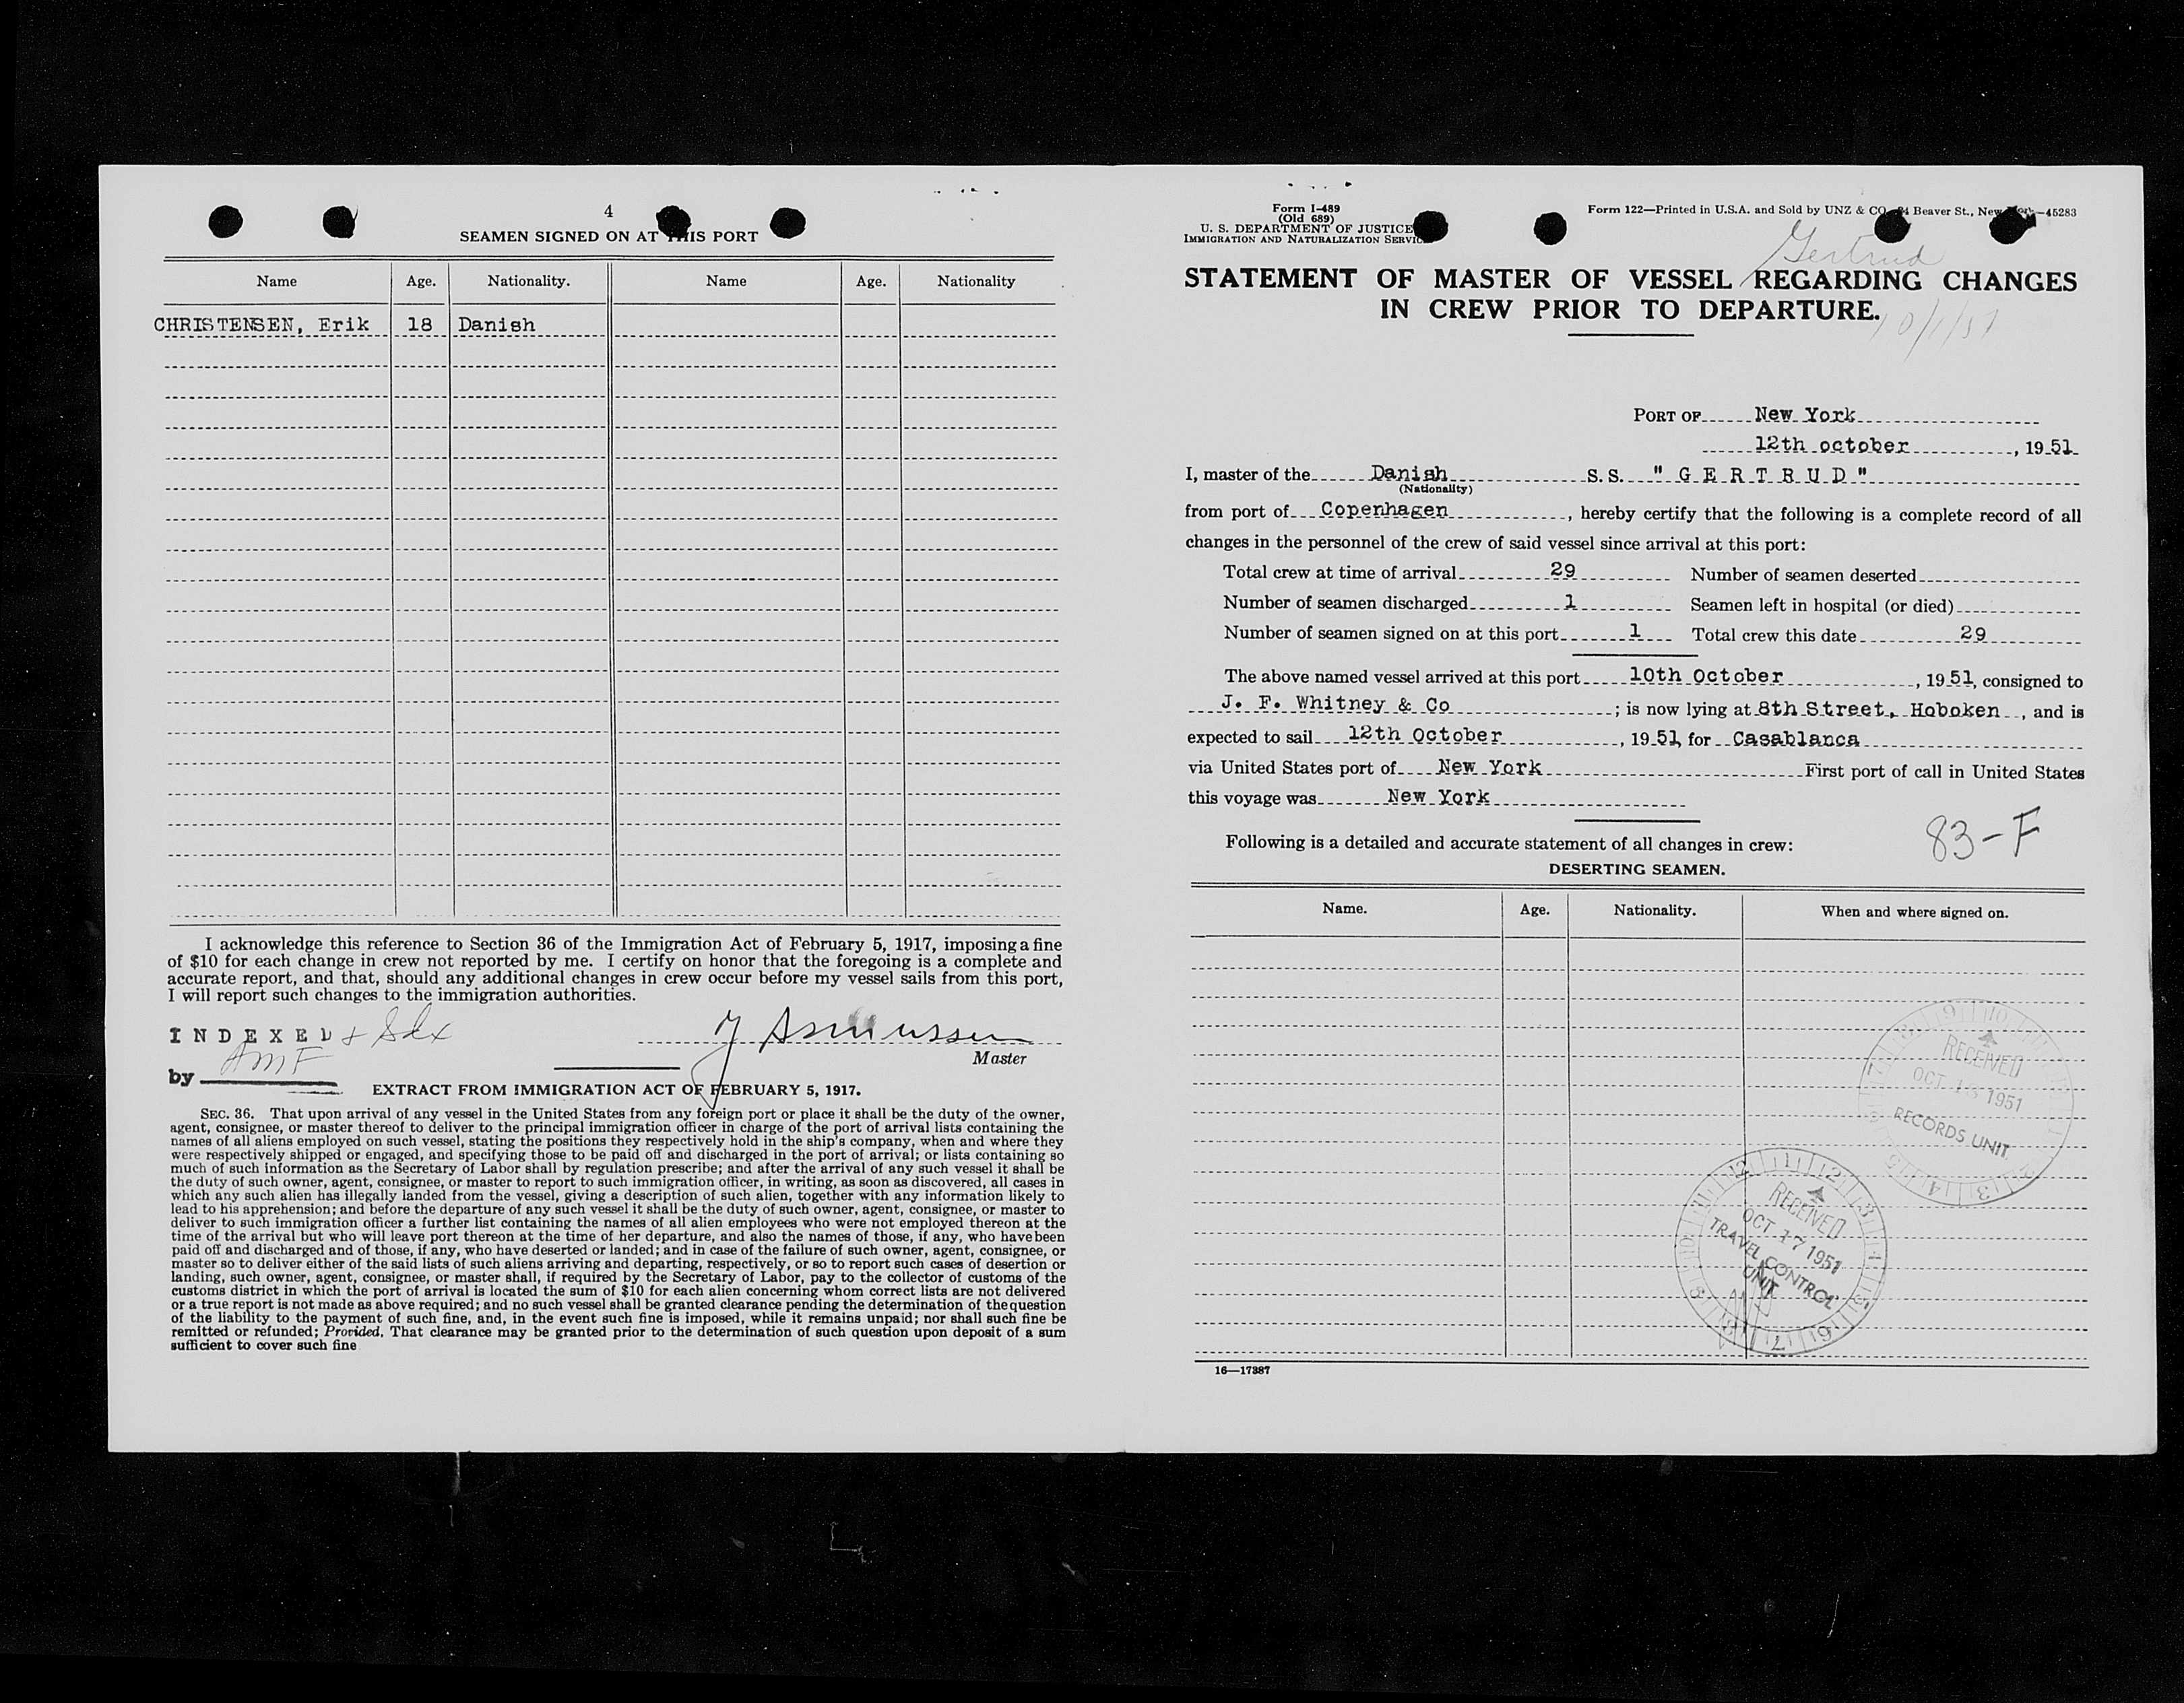 4
SEAMEN SIGNED ON AT THIS PORT
Name Age. Nationality. Name Age. Nationality
CHRISTENSEN, Erik 18 Danish
I acknowledge this reference to Section 36 of the Immigration Act of February 5, 1917, imposing a fine
of $10 for each change in crew not reported by me. I certify on honor that the foregoing is a complete and
accurate report, and that, should any additional changes in crew occur before my vessel sails from this port,
I will report such changes to the immigration authorities.
INDEXED
J Asmussen
Master
by AMF
EXTRACT FROM IMMIGRATION ACT OF FEBRUARY 5, 1917.
SEC. 36. That upon arrival of any vessel in the United States from any foreign port or place it shall be the duty of the owner,
agent, consignee, or master thereof to deliver to the principal immigration officer in charge of the port of arrival lists containing the
names of all aliens employed on such vessel, stating the positions they respectively hold in the ship's company, when and where they
were respectively shipped or engaged, and specifying those to be paid off and discharged in the port of arrival; or lists containing so
much of such information as the Secretary of Labor shall by regulation prescribe; and after the arrival of any such vessel it shall be
the duty of such owner, agent, consignee, or master to report to such immigration officer, in writing, as soon as discovered, all cases in
which any such alien has illegally landed from the vessel, giving a description of such alien, together with any information likely to
lead to his apprehension; and before the departure of any such vessel it shall be the duty of such owner, agent, consignee, or master to
deliver to such immigration officer a further list containing the names of all alien employees who were not employed thereon at the
time of the arrival but who will leave port thereon at the time of her departure, and also the names of those, if any, who have been
paid off and discharged and of those, if any, who have deserted or landed; and in case of the failure of such owner, agent, consignee, or
master so to deliver either of the said lists of such aliens arriving and departing, respectively, or so to report such cases of desertion or
landing, such owner, agent, consignee, or master shall, if required by the Secretary of Labor, pay to the collector of customs of the
customs district in which the port of arrival is located the sum of $10 for each alien concerning whom correct lists are not delivered
or a true report is not made as above required; and no such vessel shall be granted clearance pending the determination of the question
of the liability to the payment of such fine, and, in the event such fine is imposed, while it remains unpaid; nor shall such fine be
remitted or refunded; Provided, That clearance may be granted prior to the determination of such question upon deposit of a sum
sufficient to cover such fine
Form I-489
(Old 689)
U. S. DEPARTMENT OF JUSTICE
IMMIGRATION AND NATURALIZATION SERVICE
Form 122—Printed in U.S.A. and Sold by UNZ & CO. 24 Beaver St., New York—45283
Gertrud
STATEMENT OF MASTER OF VESSEL REGARDING CHANGES
IN CREW PRIOR TO DEPARTURE.
10/1/51
PORT OF New York
12th october, 1951
I, master of the Danish S.S. "GERTRUD"
(Nationality)
from port of Copenhagen, hereby certify that the following is a complete record of all
changes in the personnel of the crew of said vessel since arrival at this port:
Total crew at time of arrival 29 Number of seamen deserted
Number of seamen discharged 1 Seamen left in hospital (or died)
Number of seamen signed on at this port 1 Total crew this date 29
The above named vessel arrived at this port 10th October, 1951, consigned to
J. F. Whitney & Co; is now lying at 8th Street, Hoboken, and is
expected to sail 12th October, 1951, for Casablanca
via United States port of New York First port of call in United States
this voyage was New York
83-F
Following is a detailed and accurate statement of all changes in crew:
DESERTING SEAMEN.
Name. Age. Nationality. When and where signed on.
RECEIVED
OCT 1951
RECORDS UNIT
RECEIVED
OCT 17 1951
TRAVEL CONTROL
UNIT
16—17387